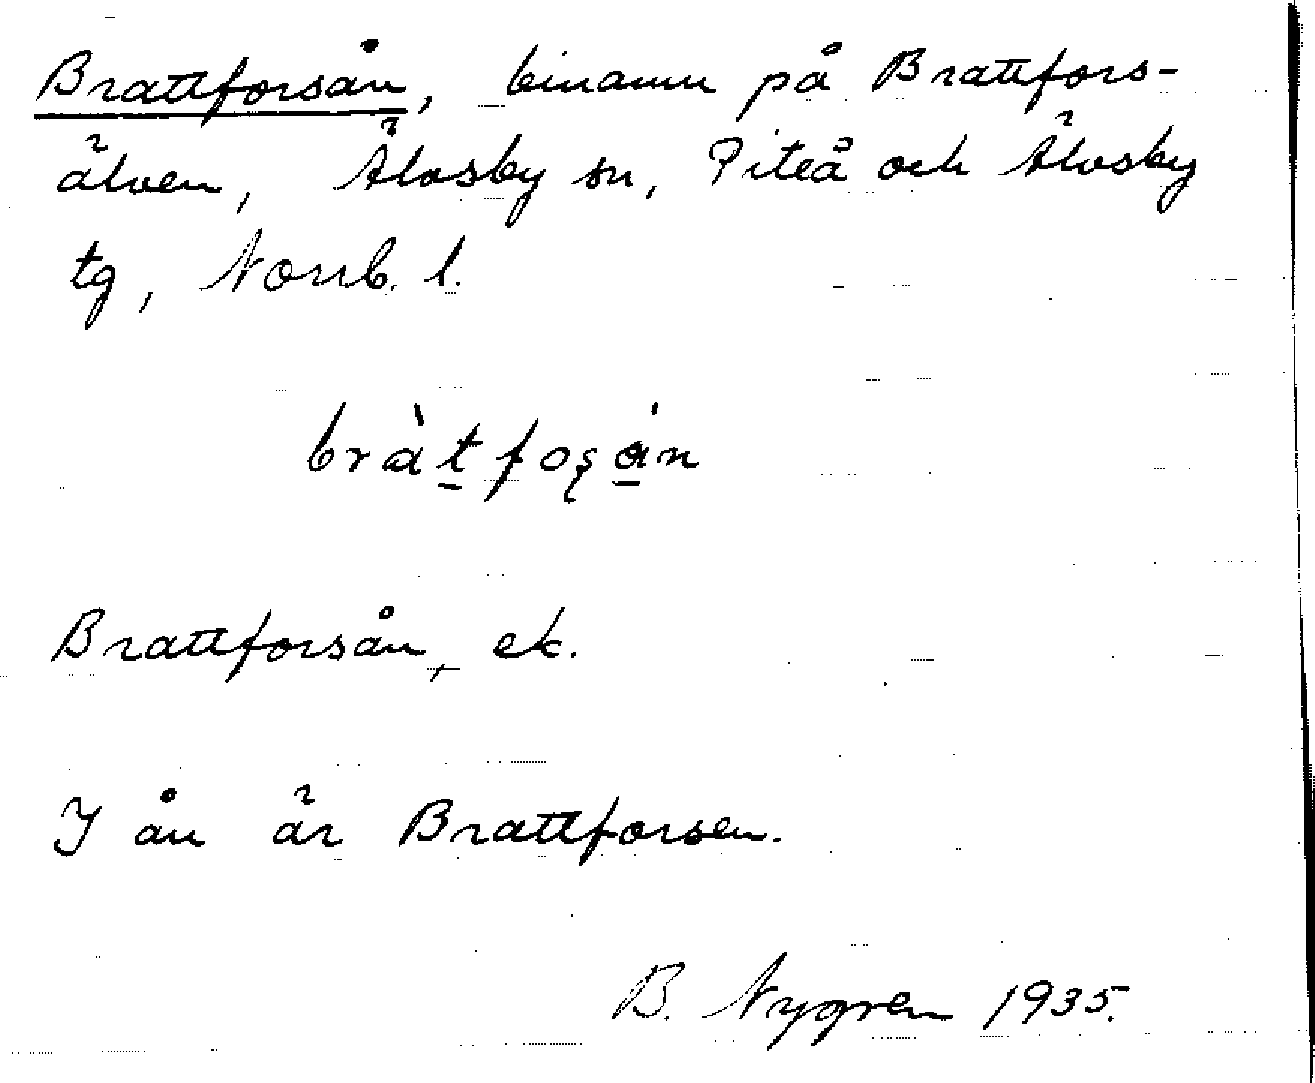 Brattforsån, binamn på Brattfors-
älven, Älvsby sn, Piteå och Älvsby
tg, Norrb. l.
Brattforsån, ek.
I ån är Brattforsen.
B. Nygren 1935.